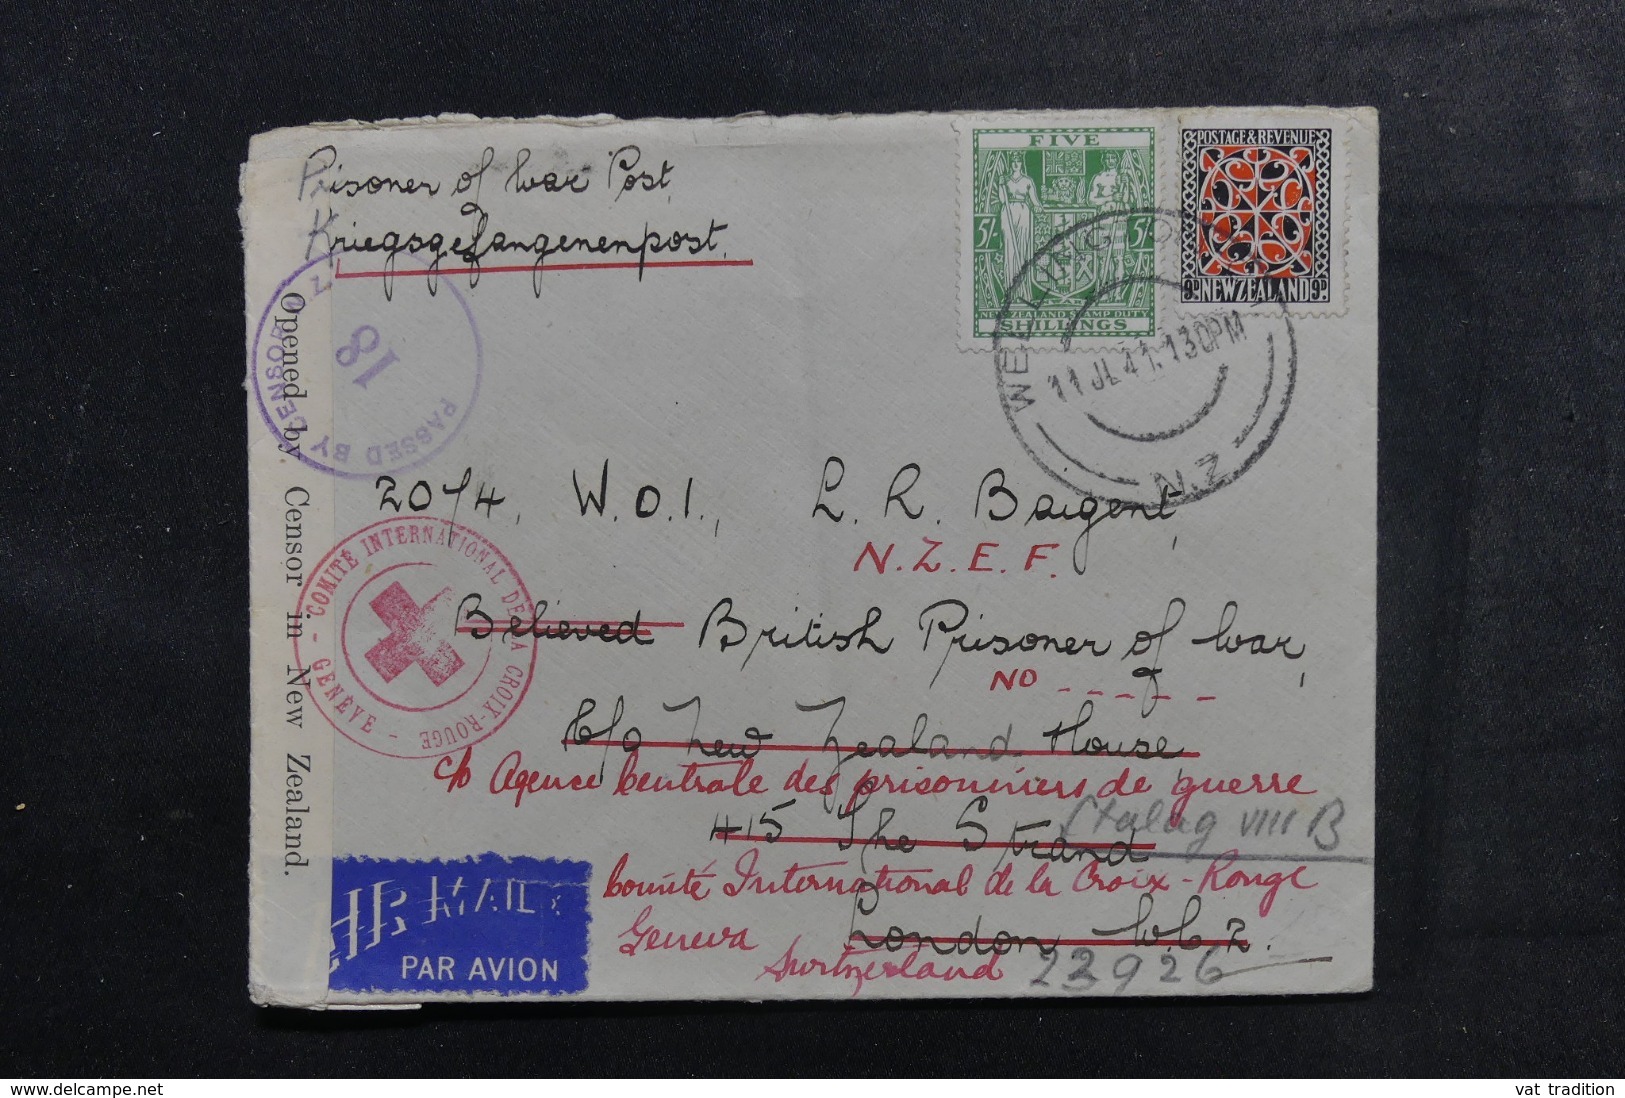 Prisoner of War Post
Kriegsgefangenenpost.
FIVE
5/- 5/-
NEW ZEALAND STAMP DUTY
SHILLINGS
POSTAGE & REVENUE
9D NEW ZEALAND 9D
WELLINGTON
11 JL 41. 130PM
N.Z.
PASSED BY CENSOR N.Z.
18
Opened by Censor in New Zealand.
COMITÉ INTERNATIONAL DE LA CROIX-ROUGE - GENÈVE -
2014, W.O.1., L. R. Baigent,
N.Z.E.F.
Believed British Prisoner of War,
NO _ _ _ _ _
C/o New Zealand House,
c/o Agence Centrale des prisonniers de guerre
415 The Strand
Stalag VIII B
Comité International de la Croix-Rouge
London W.C.2.
Geneva
Switzerland
23926
AIR MAIL
PAR AVION
vat tradition